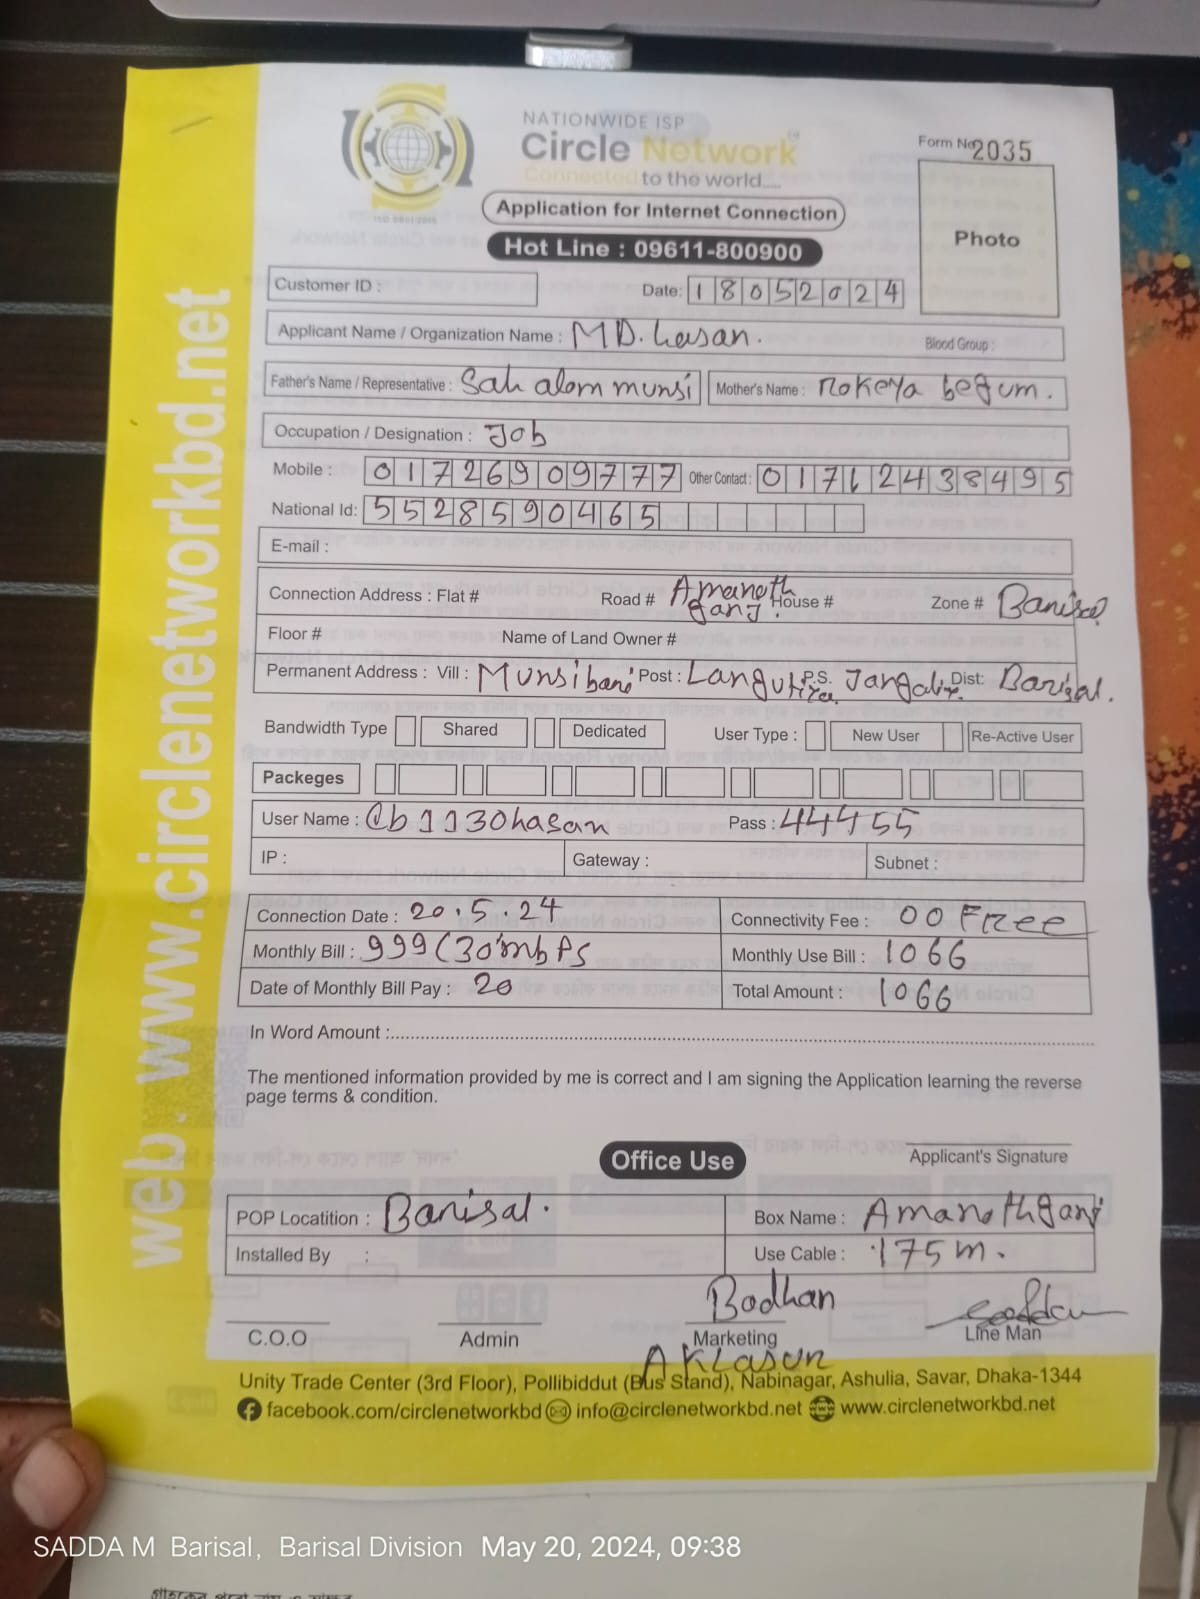 NATIONWIDE ISP
Circle Network
Connected to the world.....
ISO 9001:2015
Form No 2035
Photo
Application for Internet Connection
Hot Line : 09611-800900
Customer ID :
Date: 18052024
Applicant Name / Organization Name : MD. hasan.
Blood Group :
Father's Name / Representative : Sah alom munsi Mother's Name : Rokeya begum.
Occupation / Designation : Job
Mobile : 01726909777 Other Contact : 01712438495
National Id: 5528590465
E-mail :
Connection Address : Flat # Road # Amanoth ganj. House # Zone # Barisal
Floor # Name of Land Owner #
Permanent Address : Vill : Munsibari Post : Langutiya P.S. Dist: Barisal.
Bandwidth Type Shared Dedicated User Type : New User Re-Active User
Packeges
User Name : @b1130hasan Pass : 44455
IP : Gateway : Subnet :
Connection Date : 20.5.24 Connectivity Fee : 00 Free
Monthly Bill : 999 (30 mbps Monthly Use Bill : 1066
Date of Monthly Bill Pay : 20 Total Amount : 1066
In Word Amount :
The mentioned information provided by me is correct and I am signing the Application learning the reverse
page terms & condition.
Office Use
Applicant's Signature
POP Locatition : Barisal. Box Name : Amanothganj
Installed By : Use Cable : 175m.
Bodhan
C.O.O Admin Marketing Line Man
Unity Trade Center (3rd Floor), Pollibiddut (Bus Stand), Nabinagar, Ashulia, Savar, Dhaka-1344
facebook.com/circlenetworkbd info@circlenetworkbd.net www.circlenetworkbd.net
web: www.circlenetworkbd.net
SADDA M Barisal, Barisal Division May 20, 2024, 09:38